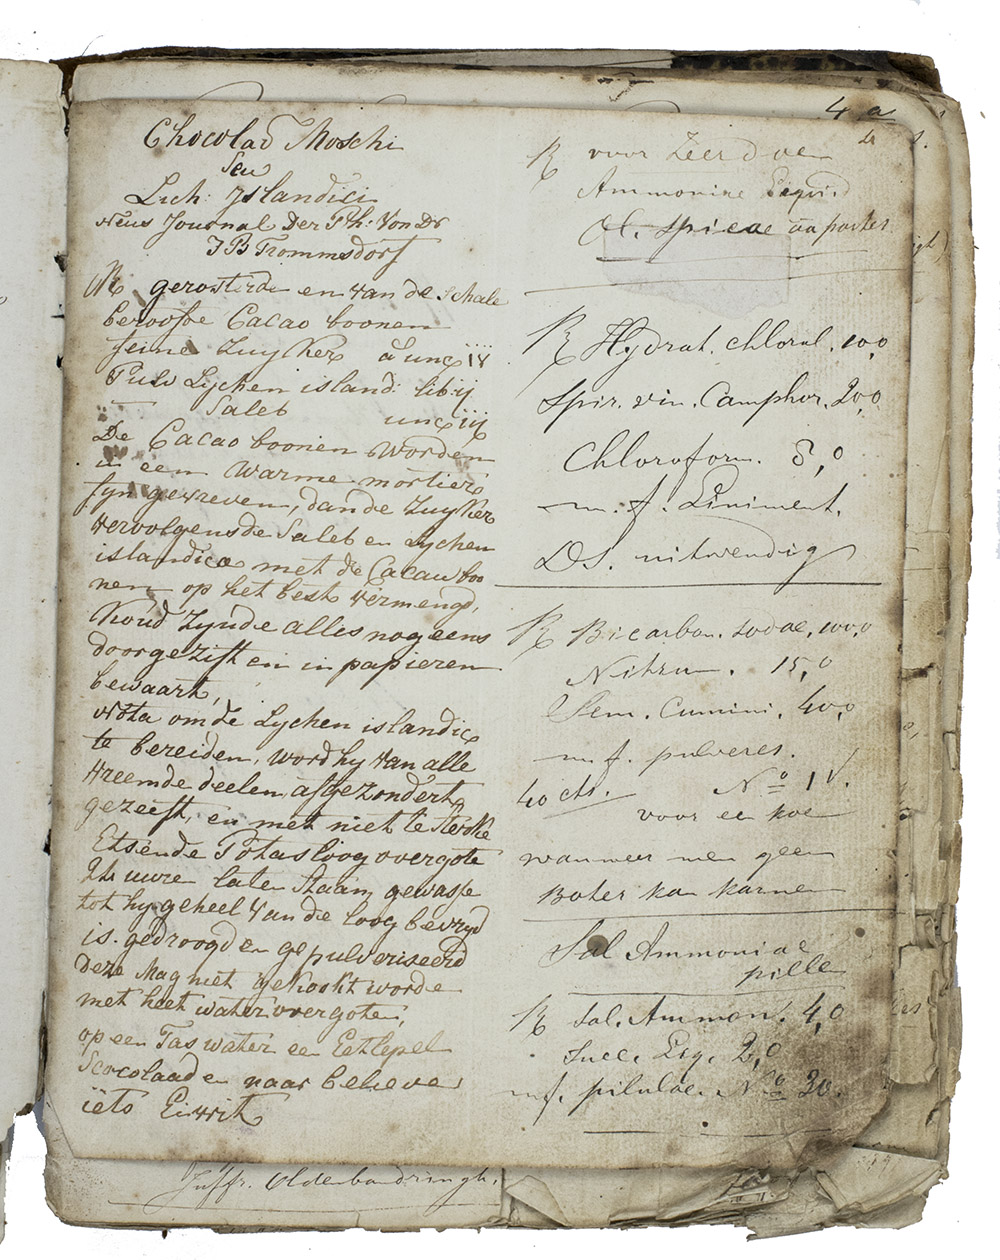 Chocolad Moschi
seu
Lich: Islandici
Neus Journal Der Ph: Von Dr
J B Trommsdorf
R gerosterde en van de Schale
beroofde Cacao boonen
feine Zuyker aa unc iv
Pulv Lychen island: lib ij
— Saleb unc iij
De Cacao boonen worden
in een warme mortier
fyn gewreven, dan de Zuyker
vervolgens de Saleb en Lychen
islandica met de Cacau boo
nen op het best vermengd,
Koud Zynde alles nog eens
doorgezift en in papieren
bewaart,
Nota om de Lychen islandic
te bereiden, word hy van alle
vreemde deelen afgezondert,
gezeeft, en met niet te sterke
Etsende Potas loog overgote
uure laten staan, gewasse
tot hy geheel van de loog bevryd
is. gedroogd en gepulveriseerd
Deze Mag niet gekookt worde
met heet water overgoten,
op een Tas water een Eetlepel
Scocolaad en naar believe
iets Eiwit
4 a
R voor Zeer doen
Ammoniae Liquid
Ol. Spicae aa partes
R Hydrat. chloral. 10,0
Spir. vin. Camphor. 20,0
Chloroform. 5,0
m. f. Liniment.
DS. uitwendig
R Bicarbon. sodae, 100,0
Nitrum. 15,0
Sem. Cumini. 40,0
m f. pulveres.
40 cts. No IV
voor een koe
wanneer men geen
Boter kan karnen
Sal Ammoniae
pille
R Sal. Ammon. 4,0
Succ. Liq. 2,0
m f. pilulae. No 30.
Juffr. Oldenbandringh.